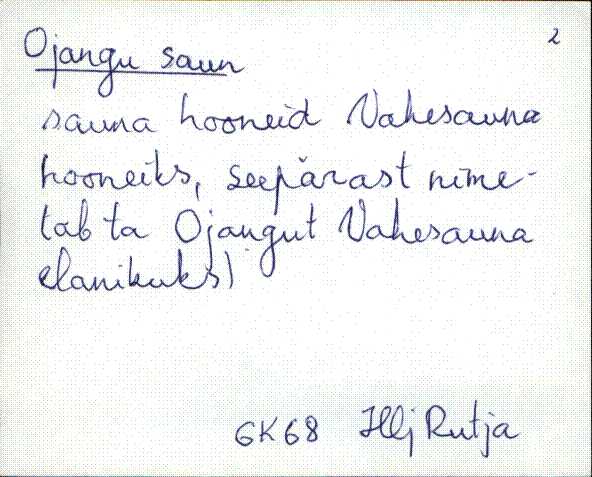 2
Ojangu saun
sauna hooneid Vahesauna
hooneiks, seepärast nime-
tab ta Ojangut Vahesauna
elanikuks)
GK68 Hlj Rutja